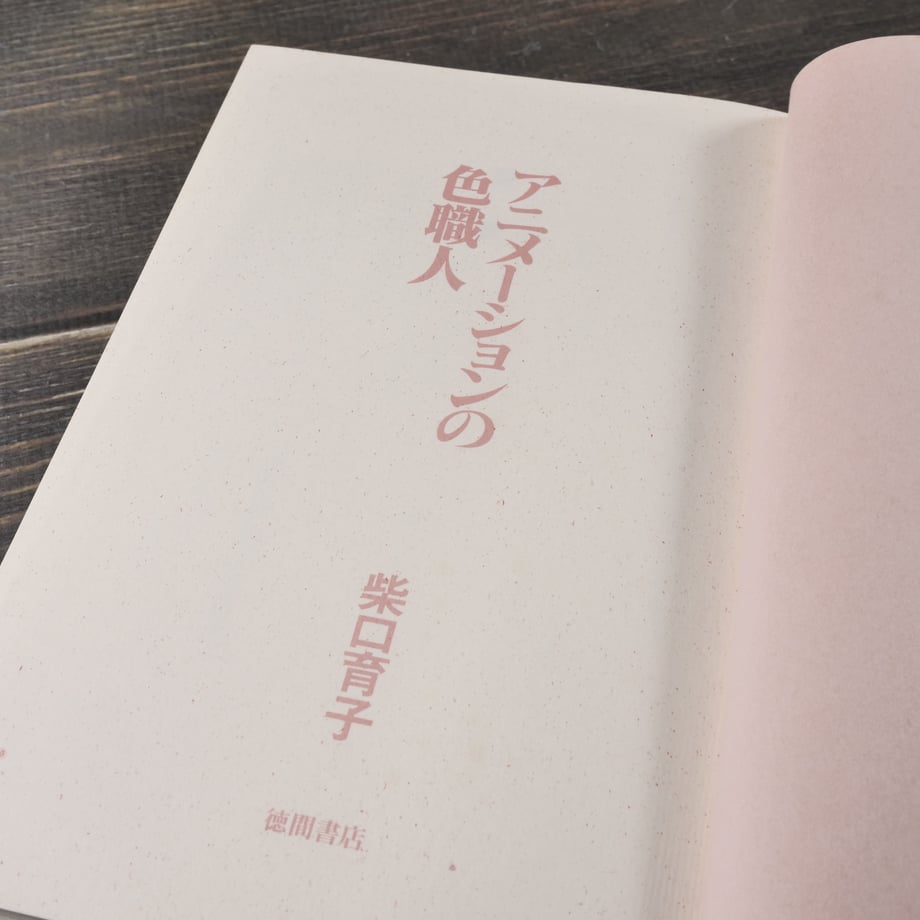 アニメーションの
色職人
柴口育子
徳間書店